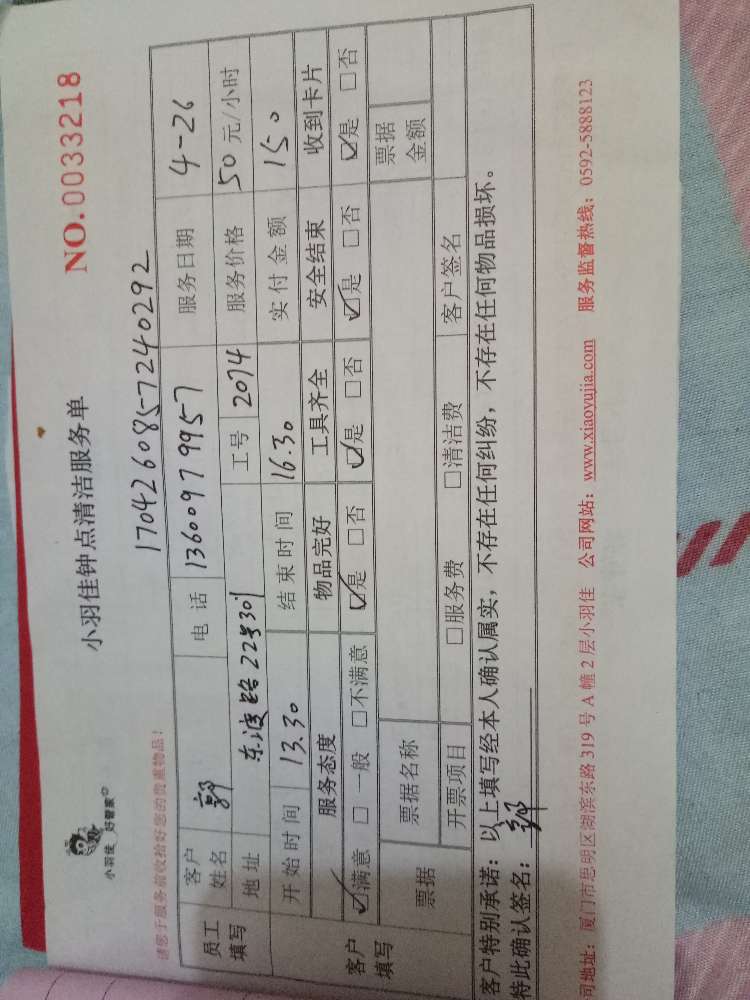 小羽佳 好管家
小羽佳钟点清洁服务单
NO.0033218
请您于服务前收拾好您的贵重物品!
1704260857240292
员工填写 客户姓名 郭 电话 13600979957 服务日期 4-26
地址 东渡路22号301 工号 2074 服务价格 50元/小时
客户填写 开始时间 13.30 结束时间 16.30 实付金额 150
服务态度 物品完好 工具齐全 安全结束 收到卡片
☑满意 □一般 □不满意 ☑是 □否 ☑是 □否 ☑是 □否 ☑是 □否
票据 票据名称 票据金额
开票项目 □服务费 □清洁费 客户签名
客户特别承诺：以上填写经本人确认属实，不存在任何纠纷，不存在任何物品损坏。
特此确认签名：郭
司地址：厦门市思明区湖滨东路319号A幢2层小羽佳 公司网站：www.xiaoyujia.com 服务监督热线：0592-5888123